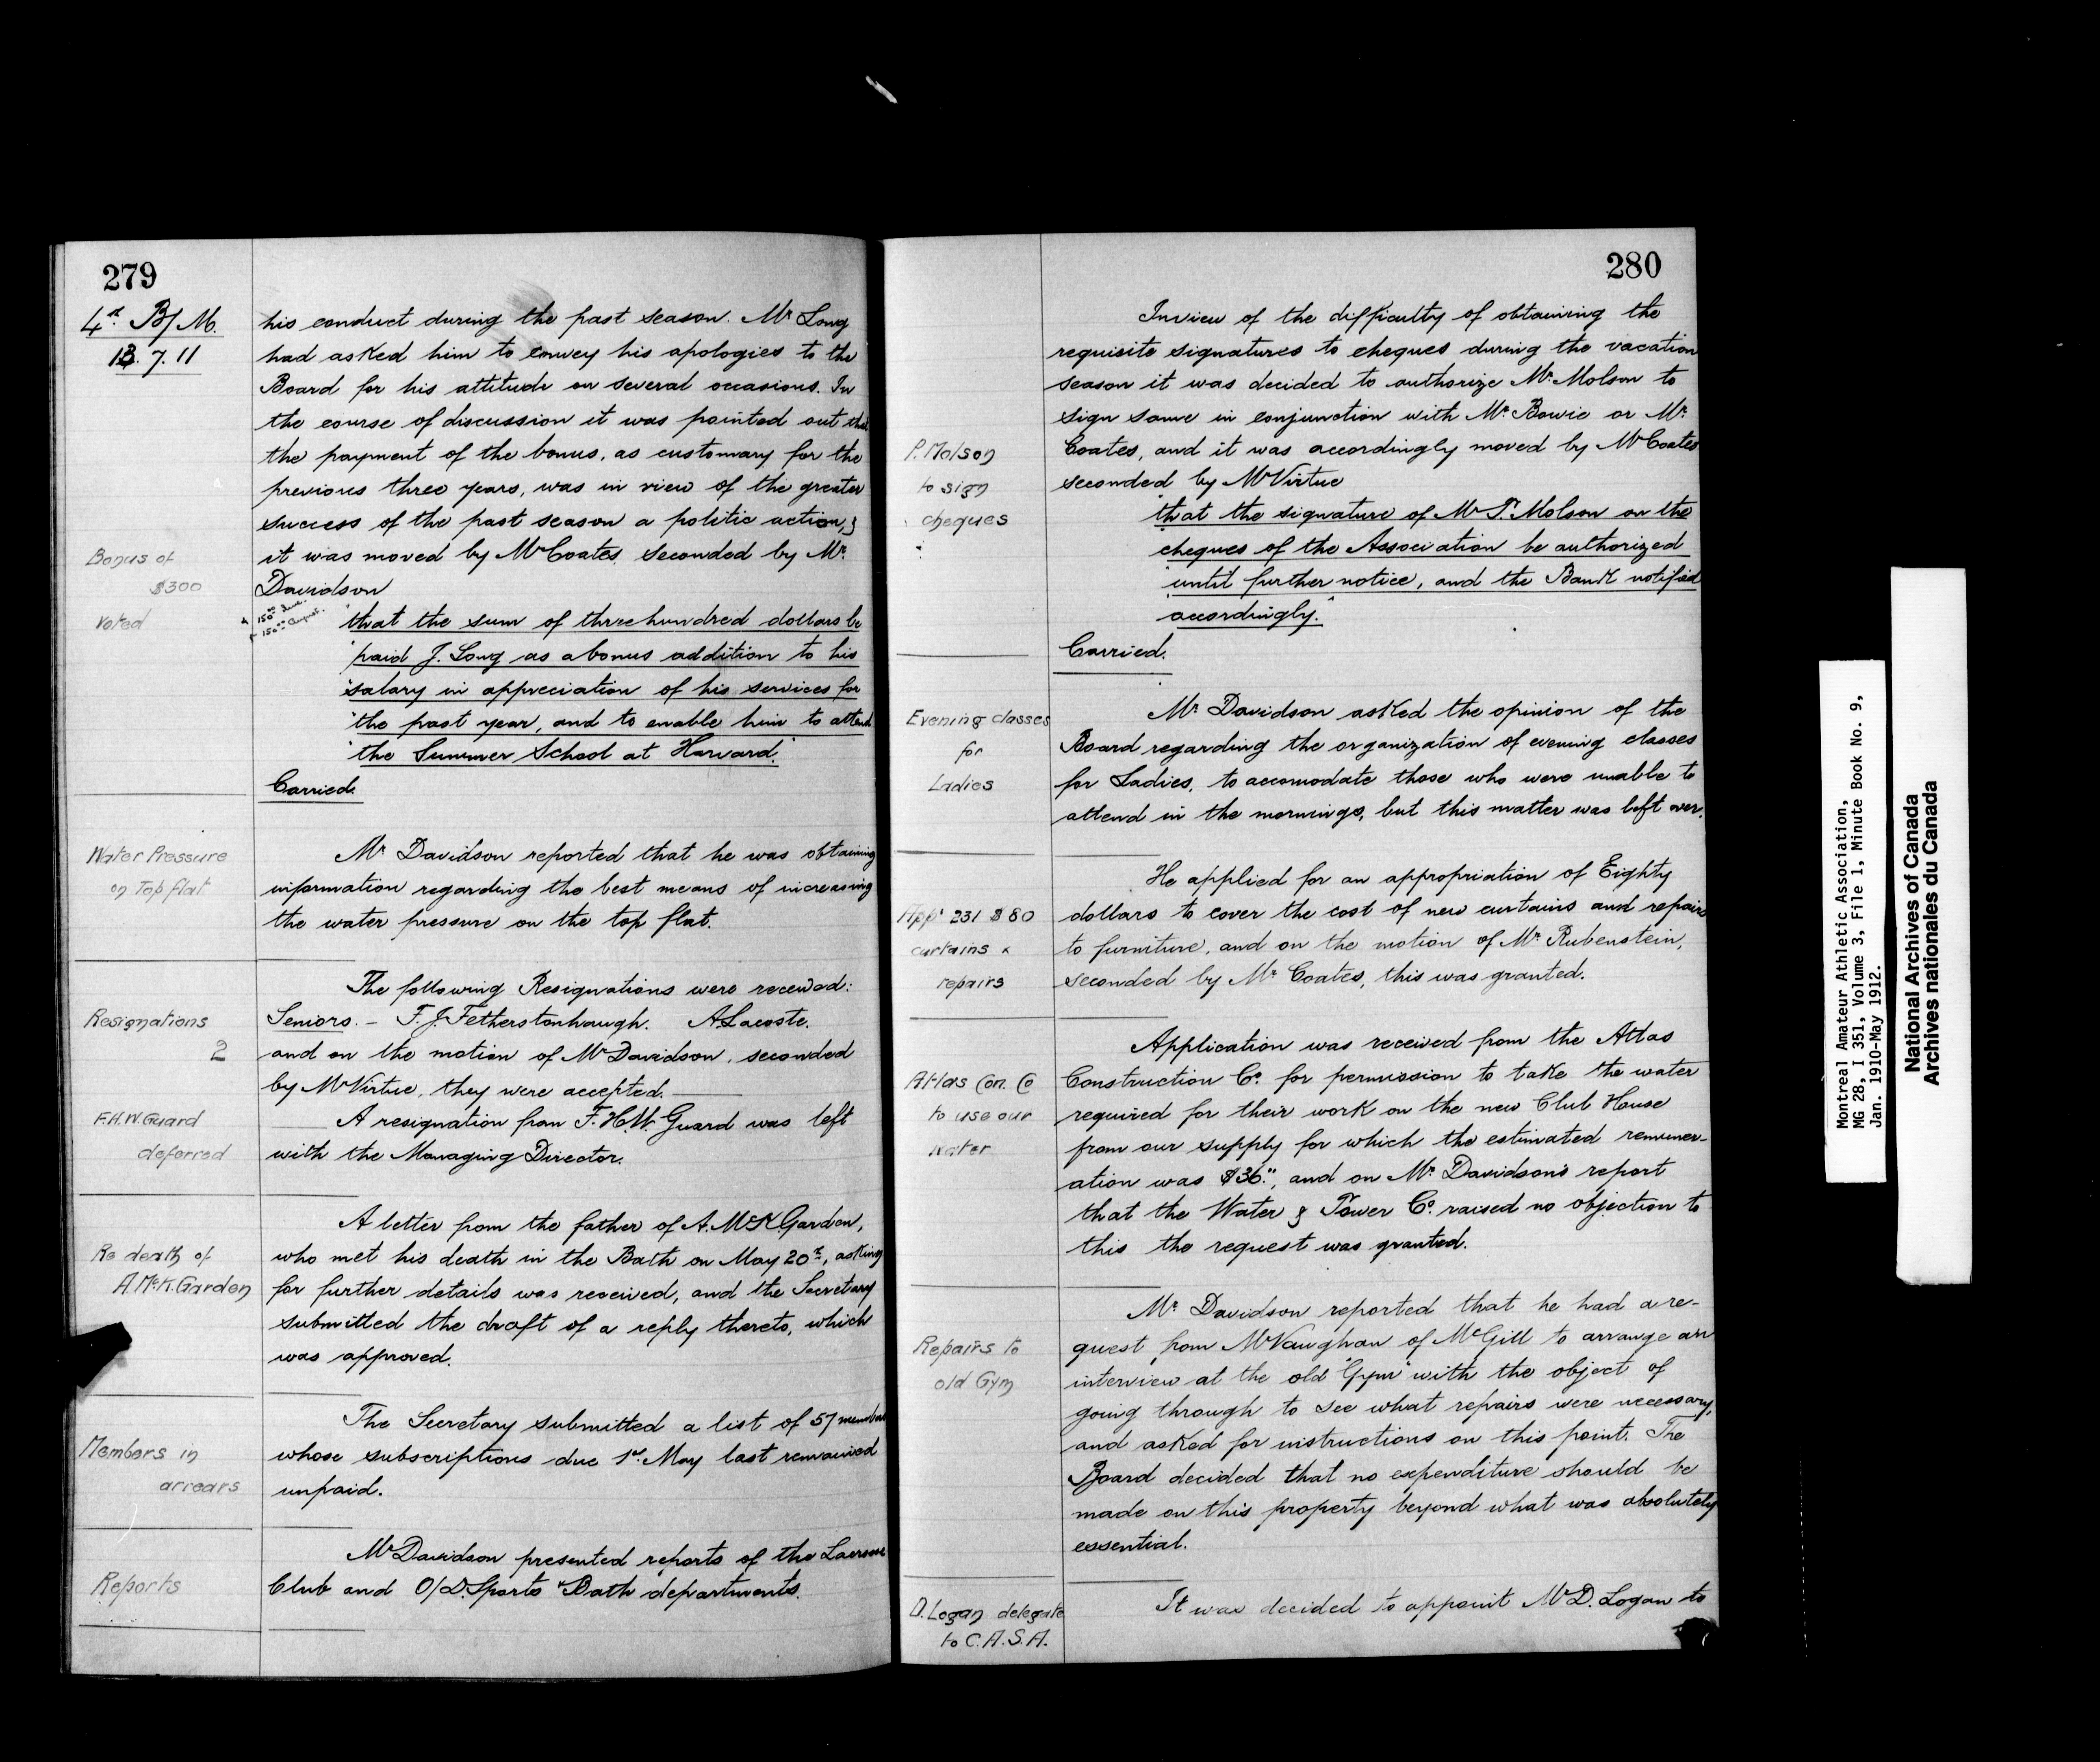 279
4th B/M.
13. 7. 11
his conduct during the past season. Mr Long
had asked him to convey his apologies to the
Board for his attitude on several occasions. In
the course of discussion it was pointed out that
the payment of the bonus, as customary for the
previous three years, was in view of the greater
success of the past season a politic action, &
it was moved by Mr Coates, seconded by Mr.
Davidson
Bonus of
$300
voted
"that the sum of three hundred dollars be
"paid J. Long as a bonus addition to his
"salary in appreciation of his services for
"the past year, and to enable him to attend
"the Summer School at Harvard."
Carried.
Water Pressure
on Top flat
Mr Davidson reported that he was obtaining
information regarding the best means of increasing
the water pressure on the top flat.
Resignations
2
The following Resignations were received:
Seniors. – F. J. Fetherstonhaugh. A. Lacoste.
and on the motion of Mr Davidson, seconded
by Mr Virtue, they were accepted.
F.H.W. Guard
deferred
A resignation from F. H. W. Guard was left
with the Managing Director.
Re death of
A. McK. Garden
A letter from the father of A. McK. Garden,
who met his death in the Bath on May 20th, asking
for further details was received, and the Secretary
submitted the draft of a reply thereto, which
was approved.
Members in
arrears
The Secretary submitted a list of 57 members
whose subscriptions due 1st May last remained
unpaid.
Reports
Mr Davidson presented reports of the Lacrosse
Club and O/D. Sports & Bath departments.
280
In view of the difficulty of obtaining the
requisite signatures to cheques during the vacation
season it was decided to authorize Mr. Molson to
sign same in conjunction with Mr. Bowie or Mr.
Coates, and it was accordingly moved by Mr Coates
seconded by Mr Virtue
P. Molson
to sign
cheques
"that the signature of Mr P. Molson on the
cheques of the Association be authorized
"until further notice, and the Bank notified
accordingly."
Carried.
Evening classes
for
Ladies
Mr Davidson asked the opinion of the
Board regarding the organization of evening classes
for Ladies, to accomodate those who were unable to
attend in the mornings, but this matter was left over.
App. 231 $80
curtains &
repairs
He applied for an appropriation of Eighty
dollars to cover the cost of new curtains and repairs
to furniture, and on the motion of Mr. Rubenstein,
seconded by Mr. Coates, this was granted.
Atlas Con. Co
to use our
water
Application was received from the Atlas
Construction Co. for permission to take the water
required for their work on the new Club House
from our supply for which the estimated remuner-
ation was $36.", and on Mr. Davidson's report
that the Water & Power Co. raised no objection to
this the request was granted.
Repairs to
old Gym
Mr Davidson reported that he had a re-
quest from Mr Vaughan of McGill to arrange an
interview at the old "Gym" with the object of
going through to see what repairs were necessary,
and asked for instructions on this point. The
Board decided that no expenditure should be
made on this property beyond what was absolutely
essential.
D. Logan delegate
to C.A.S.A.
It was decided to appoint Mr D. Logan to
Montreal Amateur Athletic Association,
MG 28, I 351, Volume 3, File 1, Minute Book No. 9,
Jan. 1910-May 1912.
National Archives of Canada
Archives nationales du Canada